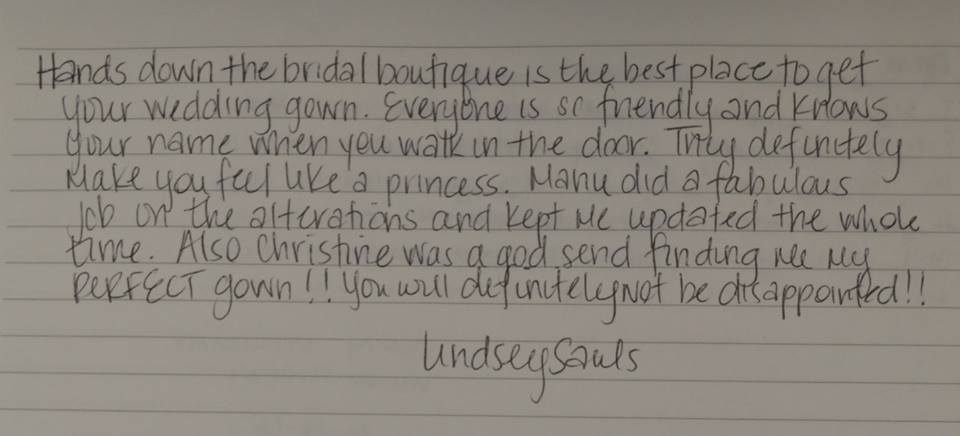 Hands down the bridal boutique is the best place to get
your wedding gown. Everyone is so friendly and knows
your name when you walk in the door. They definitely
Make you feel like a princess. Manu did a fabulous
job on the alterations and kept me updated the whole
time. Also Christine was a god send finding me my
PERFECT gown!! You will definitely not be disappointed!!
Lindsey Sauls